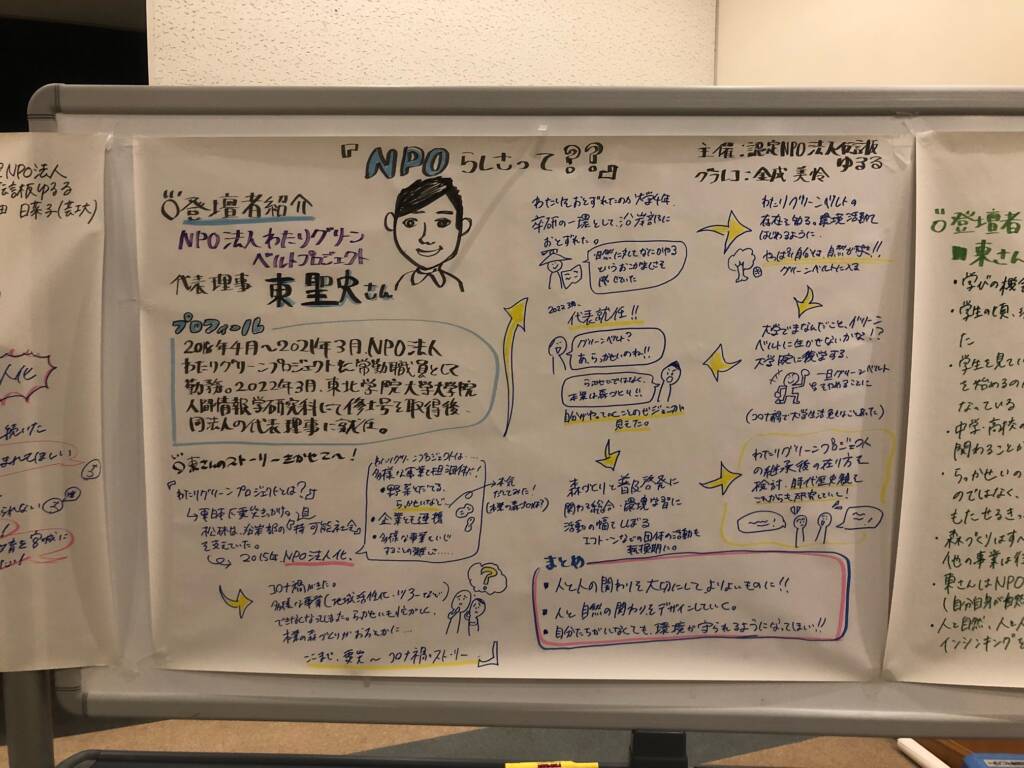 『NPOらしさって??』
主催:認定NPO法人杜の伝言板
ゆるる
グラレコ:
登壇者紹介
NPO法人わたりグリーン
ベルトプロジェクト
代表理事
東 聖史さん
プロフィール
2018年4月〜2021年3月、NPO法人
わたりグリーンプロジェクトに常勤職員として
勤務。2022年3月、東北学院大学大学院
人間情報学研究科にて修士号を取得後、
同法人の代表理事に就任。
東さんのストーリーきかせて〜!
『わたりグリーンプロジェクトとは?』
東日本大震災
松林は、沿岸部の『持続可能な社会』
を支えていた。
2015年 NPO法人化。
わたりグリーンプロジェクトは…
多様な事業を担う団体!
・野菜そだてる、
らっかせいなど
・企業とも連携
・多様な事業といじ
することの難しさ……
コロナ禍がきた。
多様な事業(地域活性化・ツアーなど)
できなくなってしまった。らっかせいも忙がしく、
本業の森づくりがおろそかに…
ここまで、震災〜コロナ禍のストーリー
わたりにおとずれたのが大学4年。
卒研の一環として、沿岸部に
おとずれた。
自然に対してなにかやる
というおこがましさを
感じていた
わたりグリーンベルトの
存在を知る。環境活動を
はじめるように
やっぱり自分は、自然が好き!!
グリーンベルトに入る
大学でまなんだこと、グリーン
ベルトに生かせないかな!?
大学院に進学する。
一旦グリーンベルト
はやめることに
(コロナ禍で大学生活もしにくいこともあった)
2022.3月、
代表就任!!
グリーンベルト?
あ、らっかせいのね!!
らっかせいではなく、
本業は森づくり!!
自分がやっていくことのビジョンが
見えた。
森づくりと普及啓発に
関わる総合・環境学習に
活動の幅をしぼる
エコトーンなどの団体の活動も
転換期に。
わたりグリーンプロジェクト
の継承後の在り方を
検討。時代を見据えて
これからも研究していく!
まとめ
・人と人の関わりを大切にしてよりよいものに!!
・人と自然の関わりをデザインしていく。
・自分たちがいなくても、環境が守られるようになってほしい!!
NPO法人
伝言板ゆるる
まれてほしい
登壇者
■東さん
・学びの機会
・学生の頃、
た
・学生を見てい
を始めるの
なっている
・中学・高校の
関わることが
・らっかせいの
のではなく、
もたせるきっ
・森づくりはす
他の事業は
・東さんはNPO
(自分自身が自然
・人と自然、人と人
インシンキングを